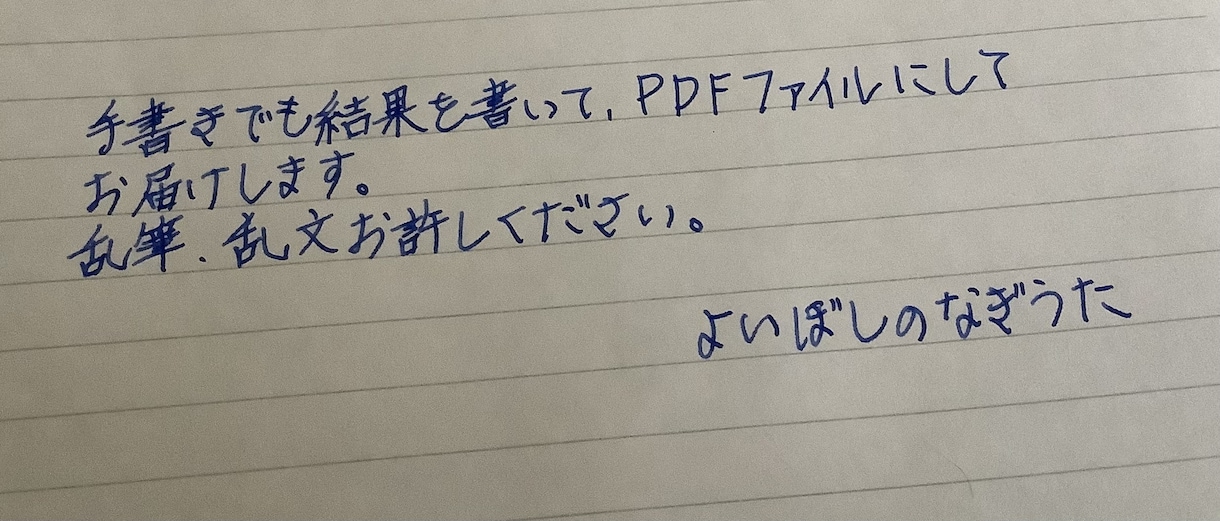 手書きでも結果を書いて、PDFファイルにして
お届けします。
乱筆、乱文お許しください。
よいぼしのなぎうた